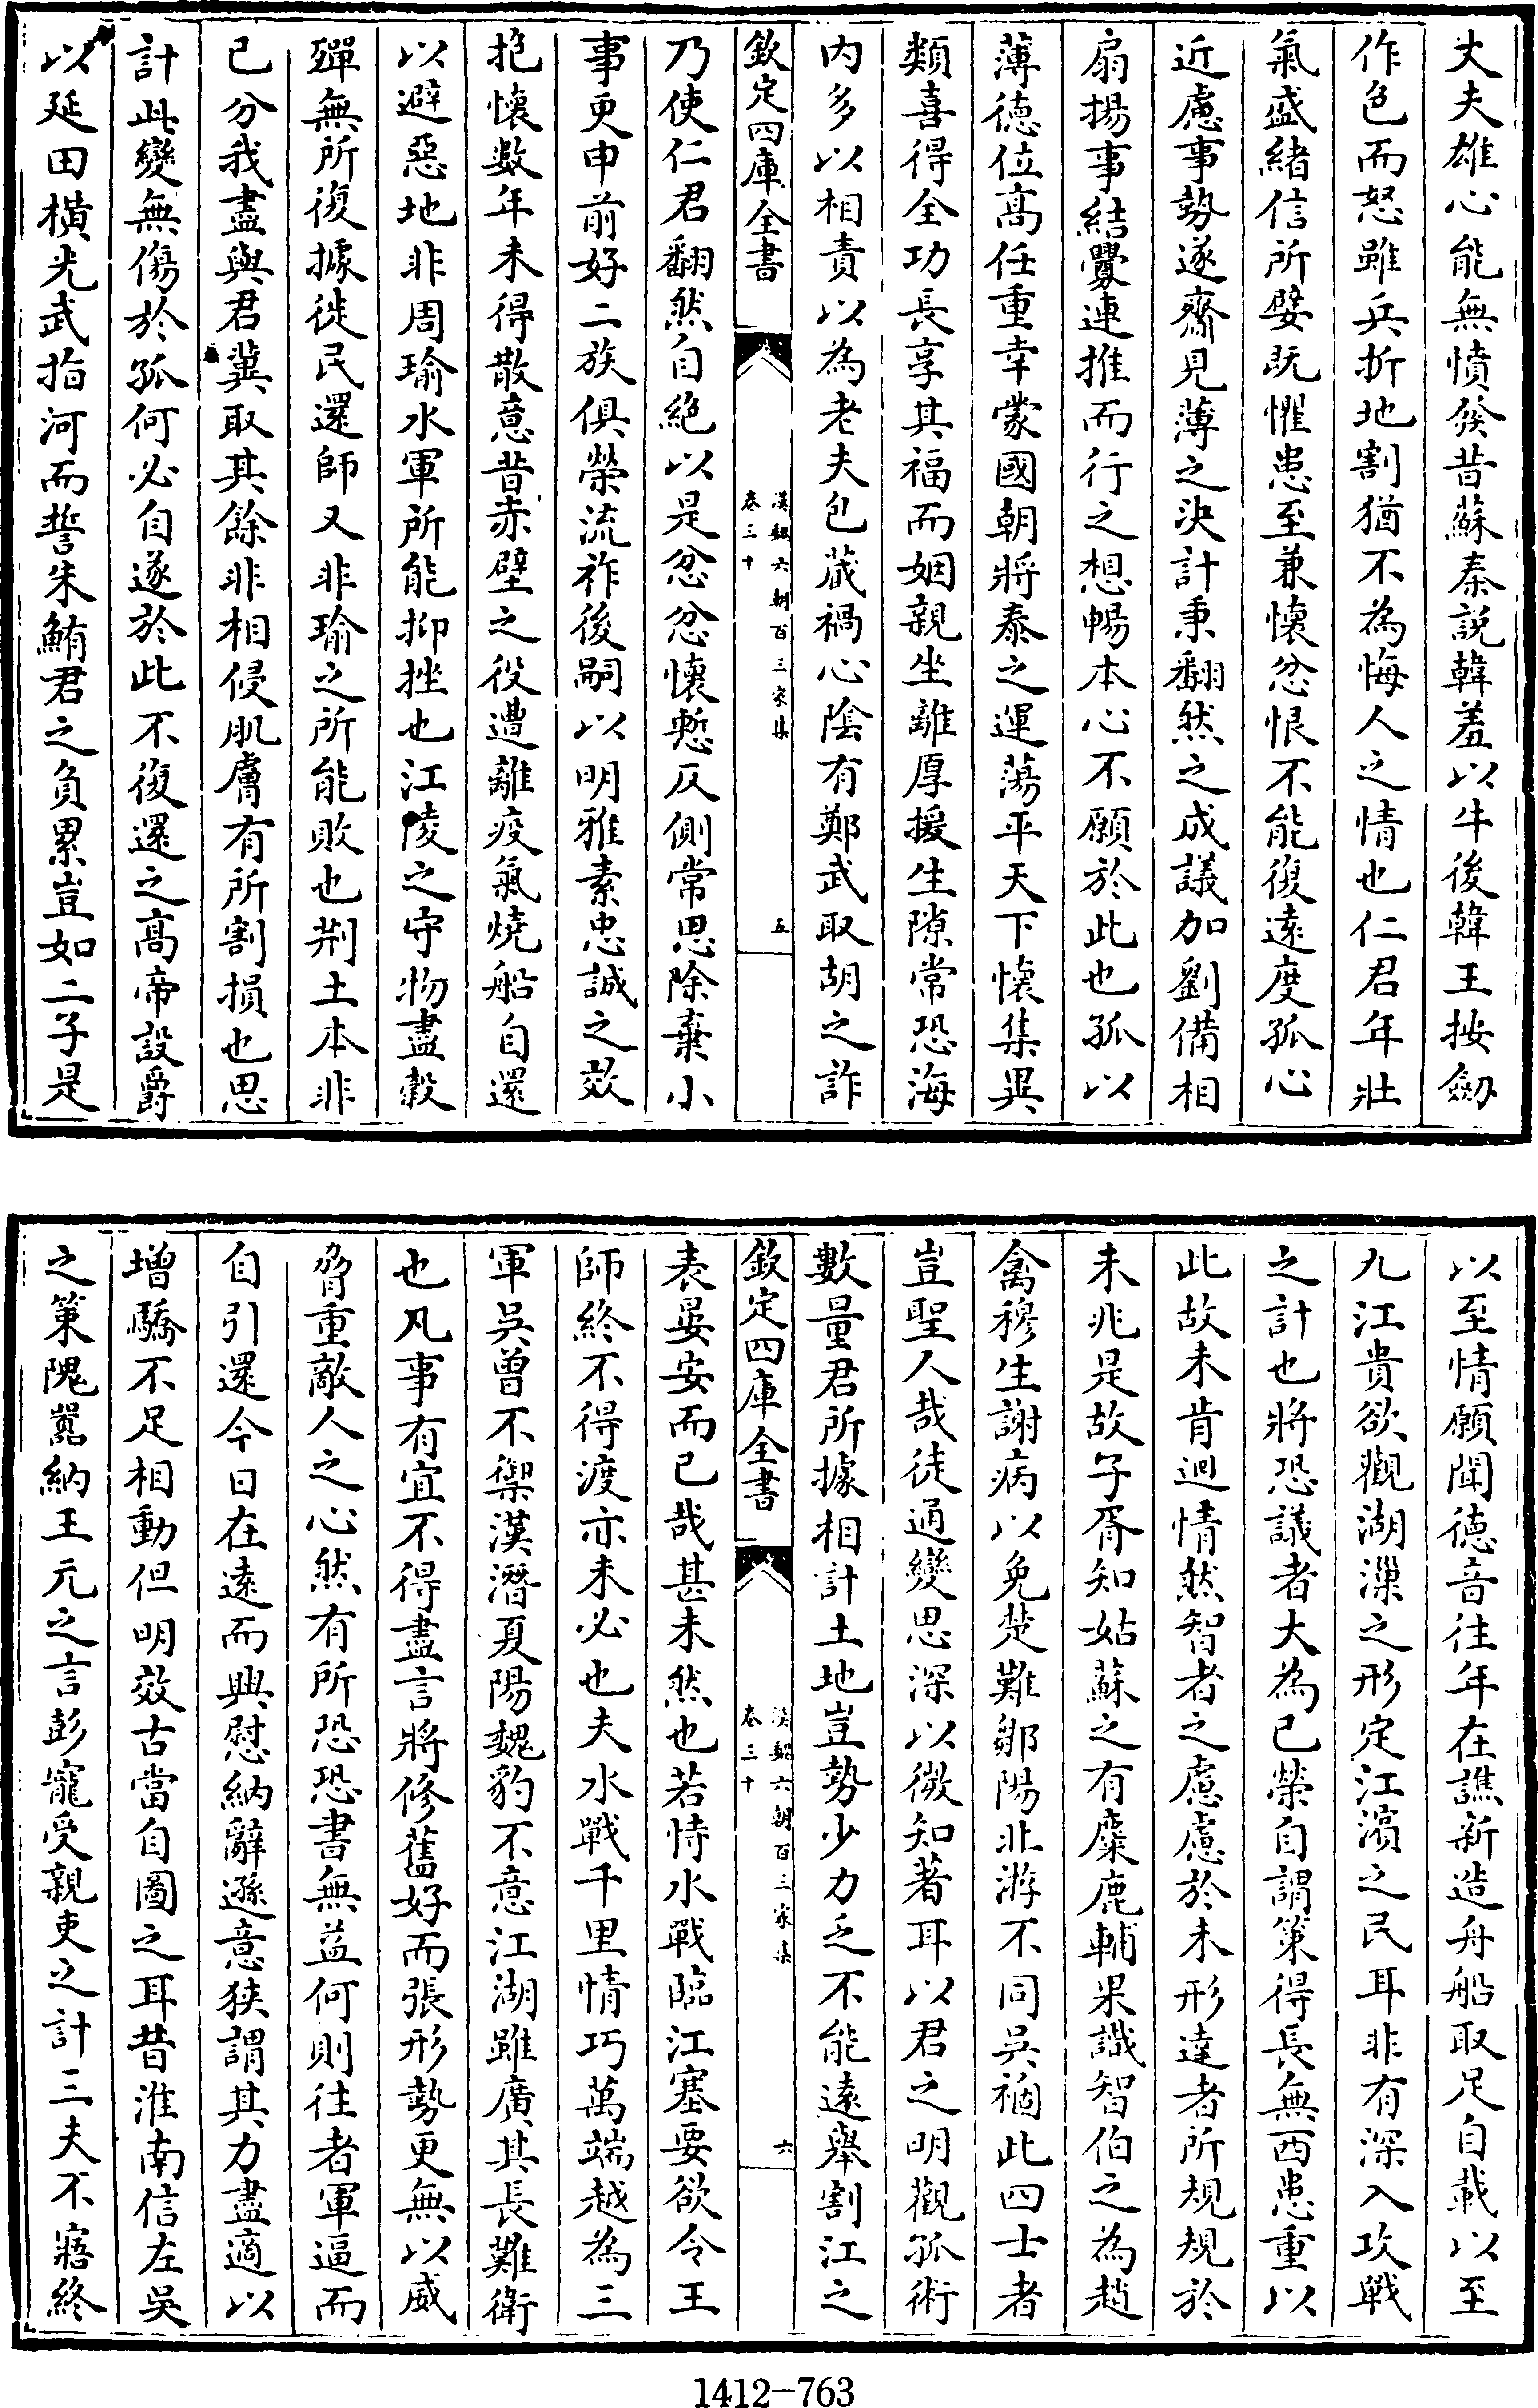 丈夫雄心能無憤發昔蘇秦説韓羞以牛後韓王按劒
作色而怒雖兵折地割猶不為悔人之情也仁君年壯
氣盛緒信所嬖既懼患至兼懐忿恨不能復逺度孤心
近慮事勢遂齎見薄之決計秉翻然之成議加劉備相
扇揚事結舋連推而行之想暢本心不願於此也孤以
薄徳位髙任重幸蒙國朝將泰之運蕩平天下懐集異
類喜得全功長享其福而姻親坐離厚援生隙常恐海
内多以相責以為老夫包蔵禍心隂有鄭武取胡之詐
欽定四庫全書
漢魏六朝百三家集
卷三十
五
乃使仁君翻然自絶以是忿忿懐慙反側常思除棄小
事更申前好二族俱榮流祚後嗣以明雅素忠誠之效
抱懐數年未得散意昔赤壁之役遭離疫氣焼船自還
以避惡地非周瑜水軍所能抑挫也江陵之守物盡穀
殫無所復據徙民還師又非瑜之所能敗也荆土本非
已分我盡與君冀取其餘非相侵肌膚有所割損也思
計此變無傷於孤何必自遂於此不復還之髙帝設爵
以延田横光武指河而誓朱鮪君之負累豈如二子是
以至情願聞徳音往年在譙新造舟船取足自載以至
九江貴欲觀湖漅之形定江濵之民耳非有深入攻戰
之計也將恐議者大為已榮自謂策得長無西患重以
此故未肯迴情然智者之慮慮於未形達者所規規於
未兆是故子胥知姑蘇之有麋鹿輔果識智伯之為趙
禽穆生謝病以免楚難鄒陽北游不同吳禍此四士者
豈聖人哉徒通變思深以微知著耳以君之明觀孤術
數量君所據相計土地豈勢少力乏不能逺舉割江之
欽定四庫全書
漢魏六朝百三家集
卷三十
六
表晏安而已哉甚未然也若恃水戰臨江塞要欲令王
師終不得渡亦未必也夫水戰千里情巧萬端越為三
軍吳曾不禦漢潛夏陽魏豹不意江湖雖廣其長難衛
也凡事有宜不得盡言將修舊好而張形勢更無以威
脅重敵人之心然有所恐恐書無益何則往者軍逼而
自引還今日在逺而興慰納辭遜意狹謂其力盡適以
增驕不足相動但明效古當自圖之耳昔淮南信左吳
之策隗囂納王元之言彭寵受親吏之計三夫不寤終
1412-763